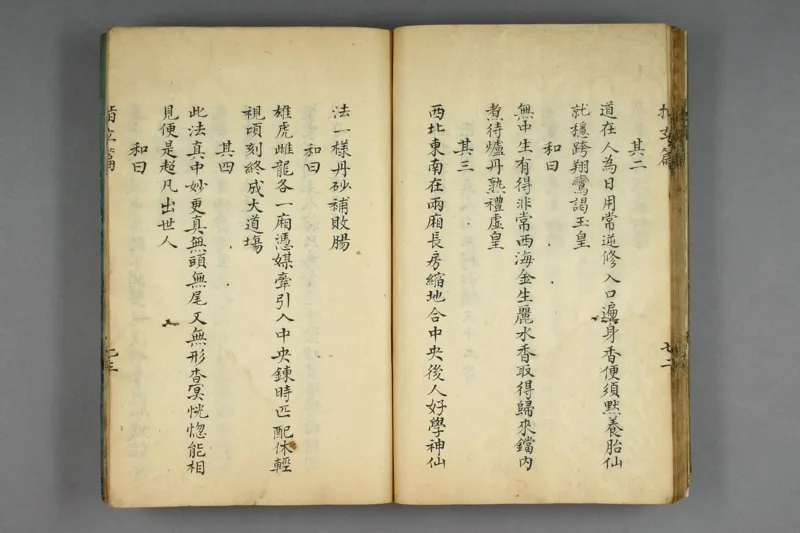 指玄篇
其二
道在人為日用常逆修入口遍身香便須默養胎仙
就穩跨翔鸞謁玉皇
和曰
無中生有得非常西海金生麗水香取得歸來鐺內
煮待爐丹熟禮虛皇
其三
西北東南在兩廂長房縮地合中央後人好學神仙
七二
法一樣丹砂補敗腸
和曰
雄虎雌龍各一廂憑媒牽引入中央鍊時匹配休輕
視頃刻終成大道場
其四
此法真中妙更真無頭無尾又無形杳冥恍惚能相
見便是超凡出世人
和曰
指玄篇
七三